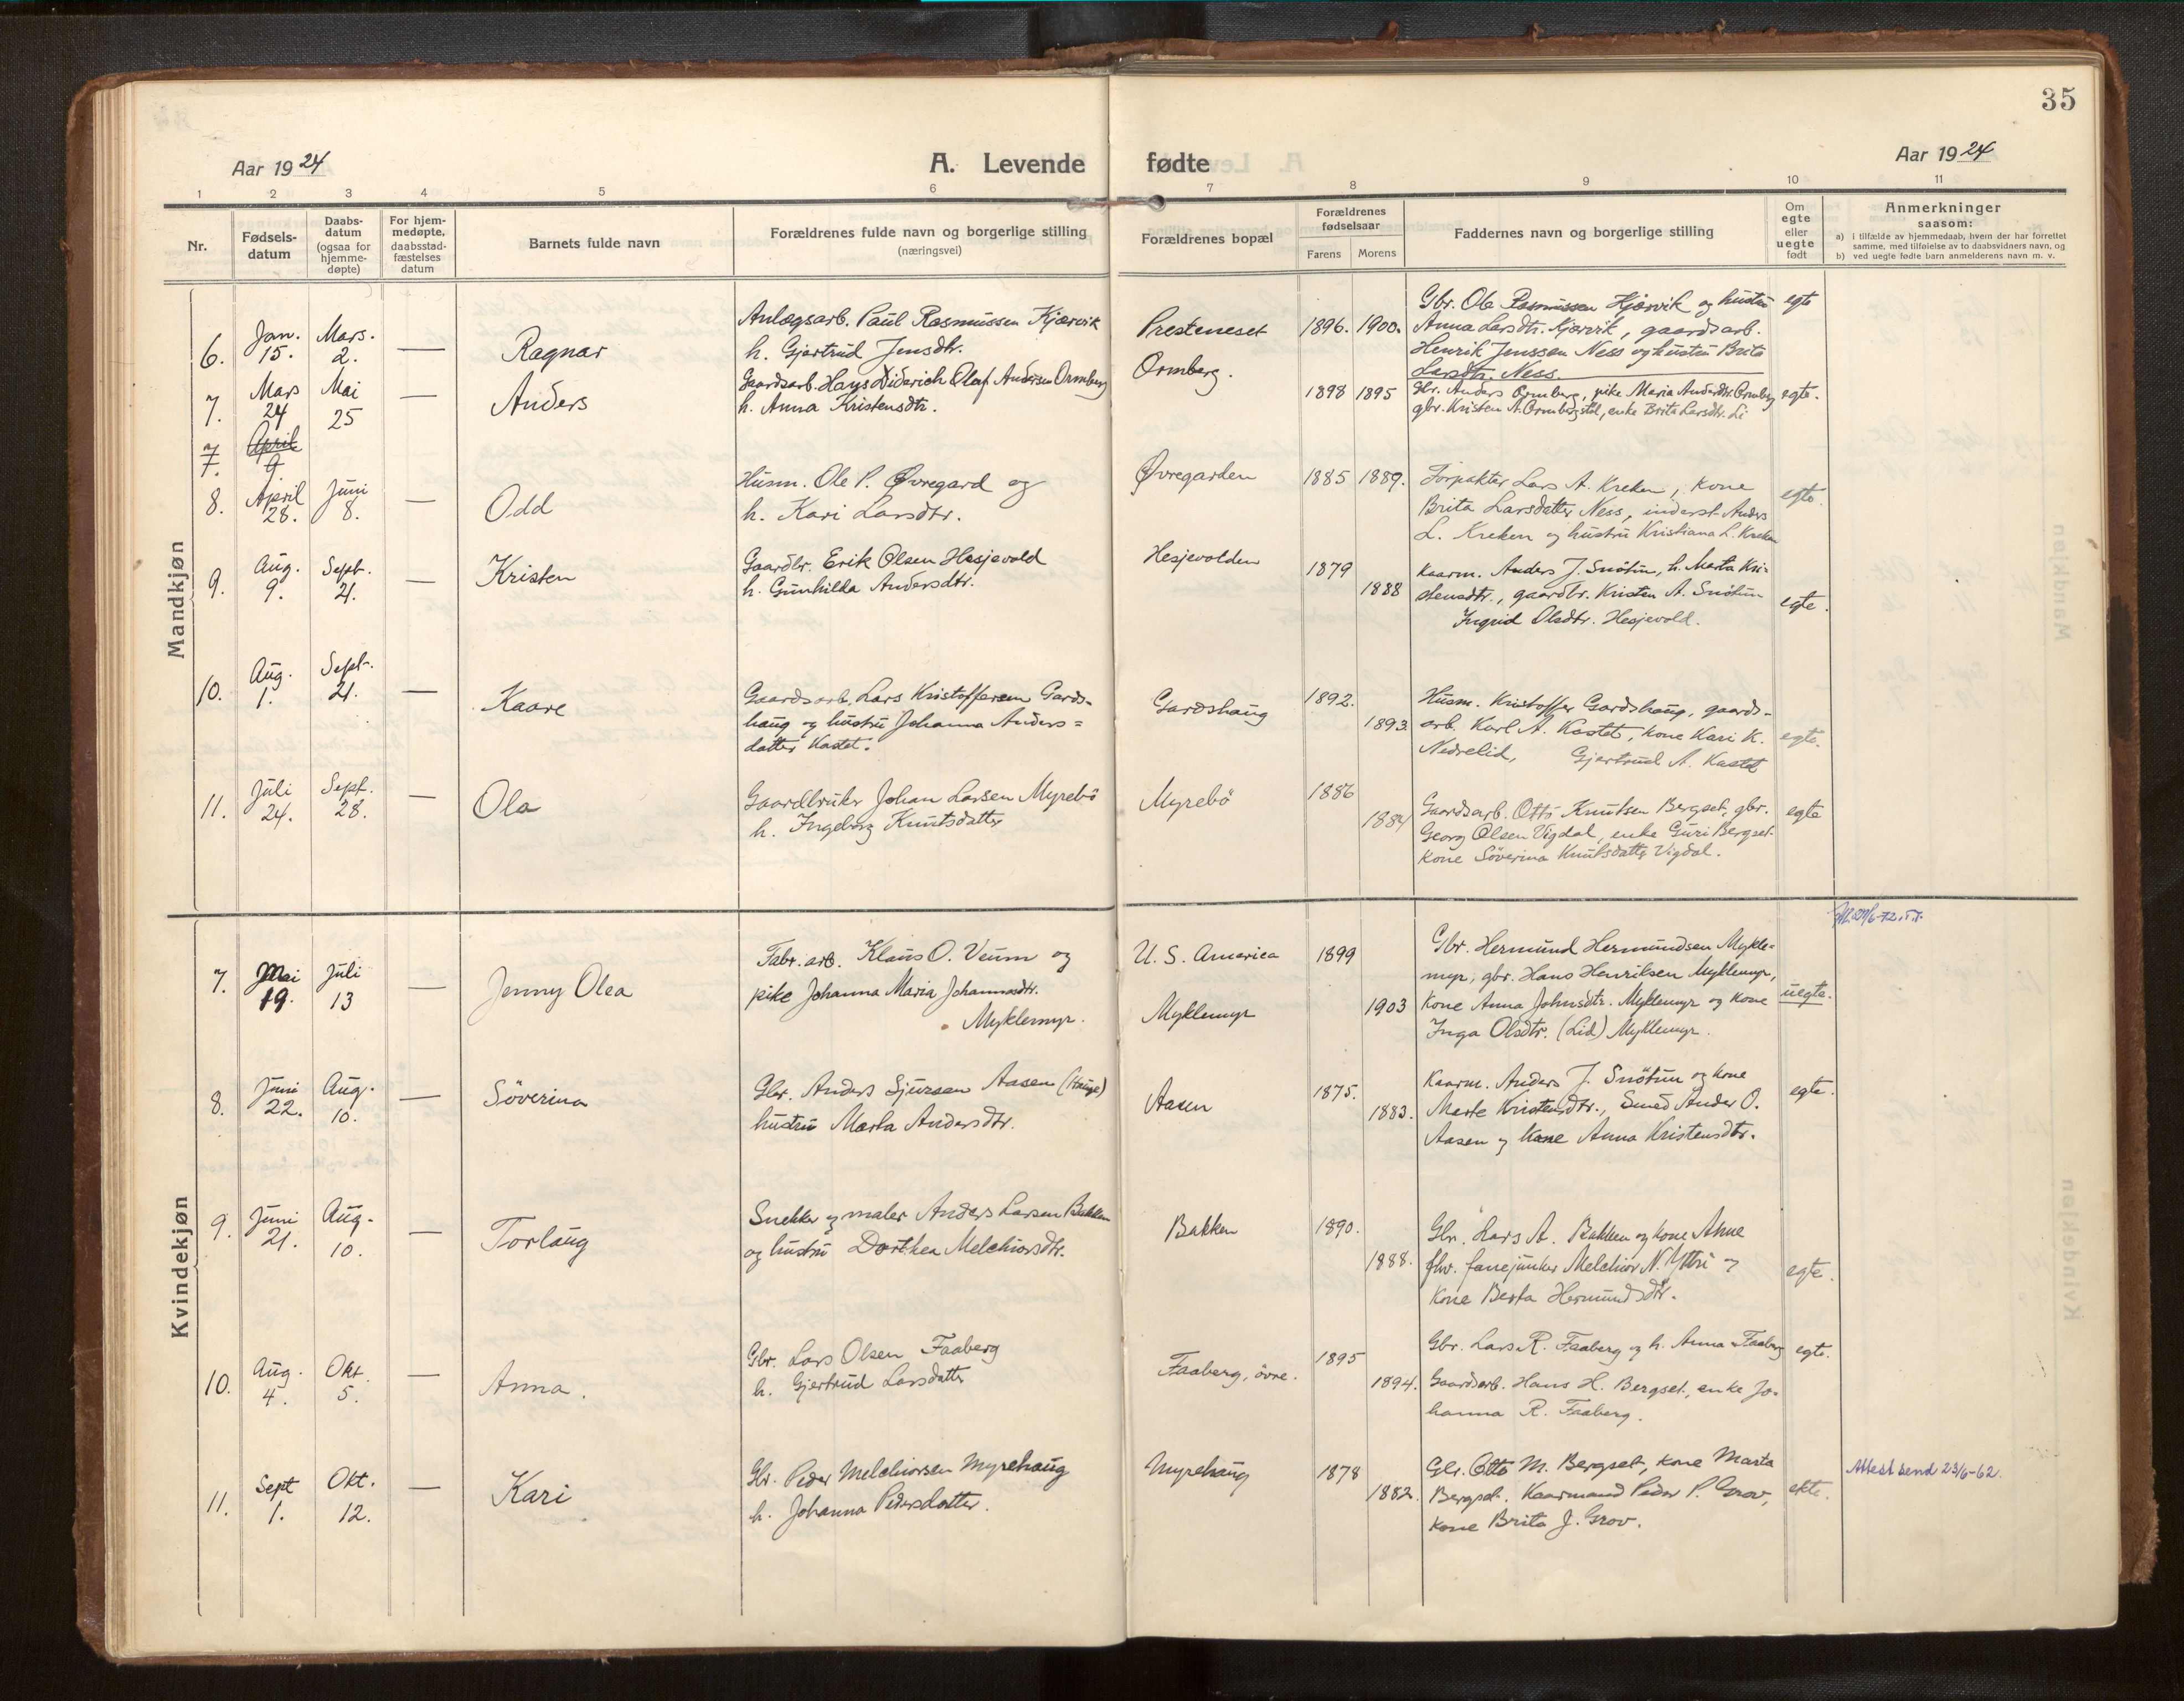 35
Aar 1924
A. Levende fødte
Aar 1924
1 2 3 4 5 6 7 8 9 10 11
Nr.
Fødsels-
datum
Daabs-
datum
(ogsaa for
hjemme-
døpte)
For hjem-
medøpte,
daabsstad-
fæstelses
datum
Barnets fulde navn
Forældrenes fulde navn og borgerlige stilling
(næringsvei)
Forældrenes bopæl
Forældrenes
fødselsaar
Farens Morens
Faddernes navn og borgerlige stilling
Om
egte
eller
uegte
født
Anmerkninger
saasom:
a) i tilfælde av hjemmedaab, hvem der har forrettet
samme, med tilføielse av to daabsvidners navn, og
b) ved uegte fødte barn anmelderens navn m. v.
Mandkjøn
6.
Jan.
15.
Mars.
2.
—
Ragnar
Anlægsarb. Paul Rasmussen Kjærvik
h. Gjertrud Jensdtr.
Presteneset
1896. 1900.
Gbr. Ole Rasmussen Kjørvik og hustru
Anna Larsdtr. Kjørvik, gaardsarb.
Henrik Jenssen Ness og hustru Brita
Larsdtr. Ness.
egte
7.
Mars
24
Mai
25
—
Anders
Gaardsarb. Hans Diderich Olaf Andersen Ormberg
h. Anna Kristensdtr.
Ormberg.
1898 1895
Gbr. Anders Ormberg, pike Maria Andersdtr. Ormberg
gbr. Kristen A. Ormbergstøl, enke Brita Larsdtr. Li
egte.
7.
April
9
8.
April
28.
Juni
8.
—
Odd
Husm. Ole P. Øvregard og
h. Kari Larsdtr.
Øvregarden
1885 1889.
Forpakter Lars A. Kreken, kone
Brita Larsdatter Ness, inderst Anders
L. Kreken og hustru Kristiana L. Kreken
egte.
9.
Aug.
9.
Sept.
21.
—
Kristen
Gaardbr. Erik Olsen Hesjevold
h. Gunhilda Andersdtr.
Hesjevolden
1879
1888
Kaarm. Anders J. Snøtun, h. Marta Kri-
stensdtr., gaardbr. Kristen A. Snøtun
Ingrid Olsdtr. Hesjevold.
egte.
10.
Aug.
1.
Sept.
21.
—
Kaare
Gaardsarb. Lars Kristoffersen Gards-
haug og hustru Johanna Anders=
datter Kastet.
Gardshaug
1892.
1893.
Husm. Kristoffer Gardshaug, gaards-
arb. Karl A. Kastet, kone Kari K.
Nedrelid, Gjertrud A. Kastet
egte.
11.
Juli
24.
Sept.
28.
—
Ola
Gaardbruker Johan Larsen Myrebö
h. Ingeborg Knutsdatter
Myrebö
1886
1884
Gaardsarb. Otto Knutsen Bergset, gbr.
Georg Olsen Vigdal, enke Guri Bergset
kone Söverina Knutsdatter Vigdal.
egte
Kvindekjøn
7.
Mai
19.
Juli
13
—
Jenny Olea
Fabr. arb. Klaus O. Veum og
pike Johanna Maria Johannesdtr.
Myklemyr.
U. S. America
Myklemyr
1899
1903
Gbr. Hermund Hermundsen Mykle=
myr, gbr. Hans Henriksen Myklemyr,
kone Anna Johnsdtr. Myklemyr og kone
Inga Olsdtr. (Lid) Myklemyr.
uegte.
8.
Juni
22.
Aug.
10.
—
Söverina
Gbr. Anders Sjursen Aasen (Hauge)
hustru Marta Andersdtr.
Aasen
1875.
1883.
Kaarm. Anders J. Snötun og kone
Marte Kristensdtr., Smed Anders O.
Aasen og kone Anna Kristensdtr.
egte.
9.
Juni
21.
Aug.
10.
—
Torlaug
Snekker og maler Anders Larsen Bakken
og hustru Dorthea Melchiorsdtr.
Bakken
1890.
1888.
Gbr. Lars A. Bakken og kone Anne
fhv. fanejunker Melchior N. Yttri og
kone Berta Hermundsdtr.
egte.
10.
Aug.
4.
Okt.
5.
—
Anna.
Gbr. Lars Olsen Faaberg
h. Gjertrud Larsdatter
Faaberg, övre.
1895
1894.
Gbr. Lars R. Faaberg og h. Anna Faaberg
Gaardsarb. Hans H. Bergset, enke Jo-
hanna R. Faaberg.
egte.
11.
Sept
1.
Okt.
12.
—
Kari
Gbr. Peder Melchiorsen Myrehaug
h. Johanna Pedersdatter.
Myrehaug
1878
1882.
Gbr. Otto M. Bergset, kone Marta
Bergset. Kaarmand Peder P. Grov,
kone Brita J. Grov.
ekte.
Attest send 23/6-62.